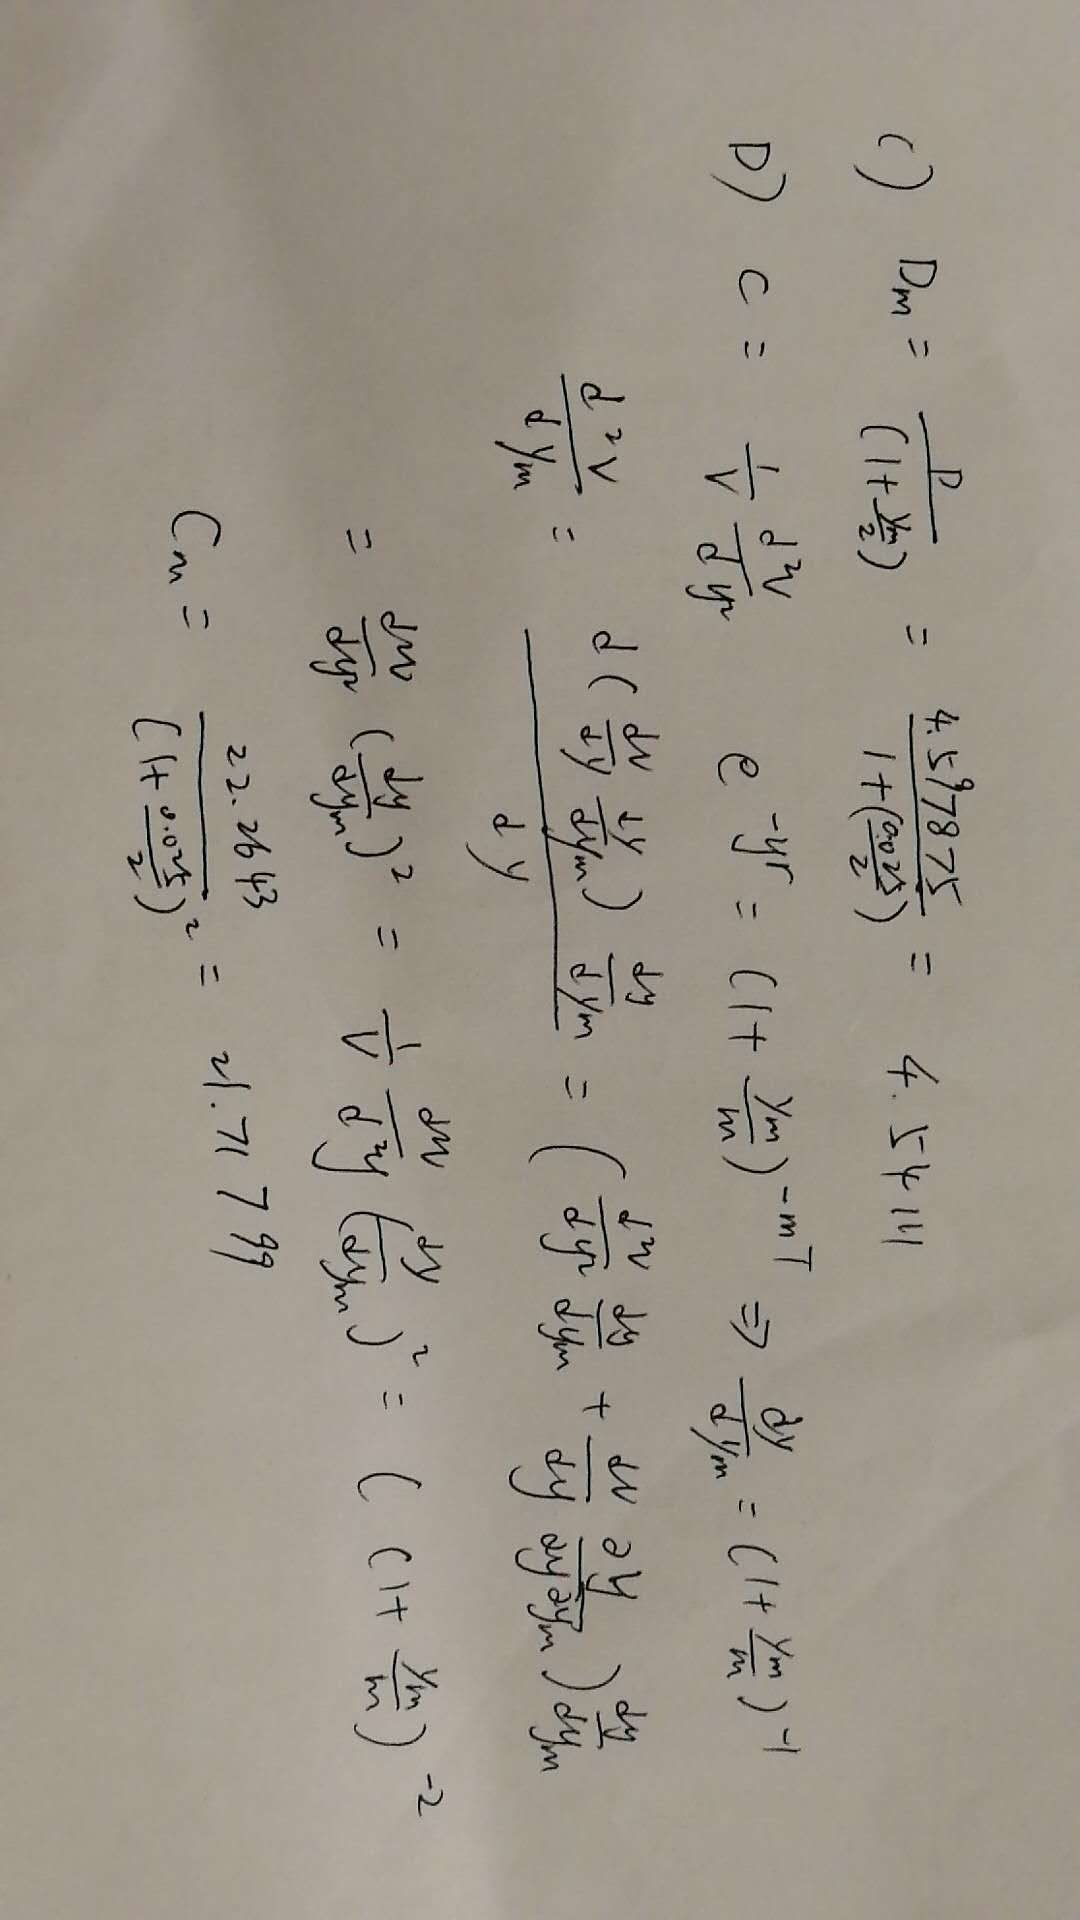 C) Dm = D / (1 + ym/2) = 4.597875 / 1 + (0.025/2) = 4.54111
D) C = 1/V d²V/dy² e^-yT = (1 + ym/m)^-mT ⇒ dy/dym = (1 + ym/m)^-1
d²V/dym = d(dv/dy dy/dym) dy/dym / dy = (d²v/dy² dy/dym + dv/dy ∂y/∂y∂ym) dy/dym
= d²v/dy² (dy/dym)² = 1/V d²v/d²y (dy/dym)² = ( (1 + ym/m)^-2
Cm = 22.2643 / (1 + 0.025/2)² = 21.71799